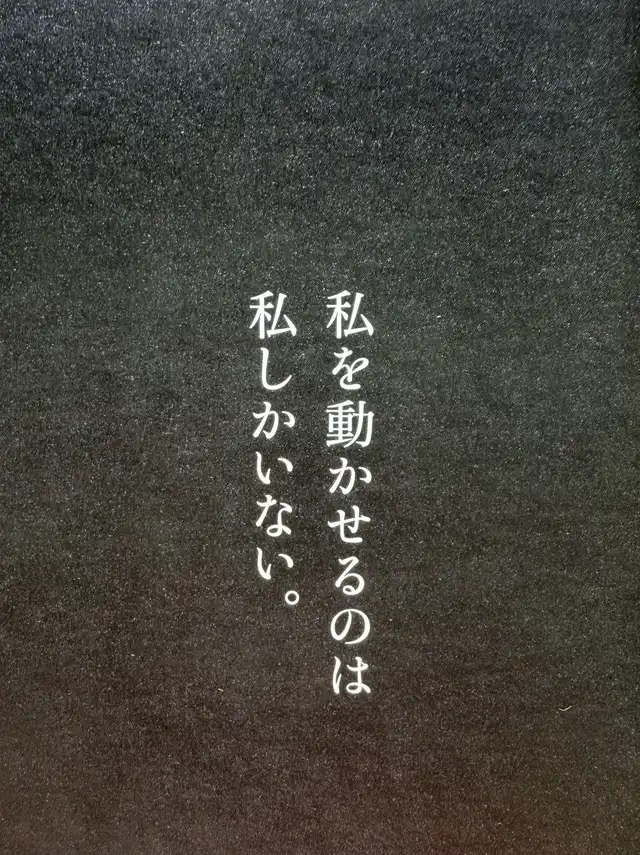 私を動かせるのは
私しかいない。